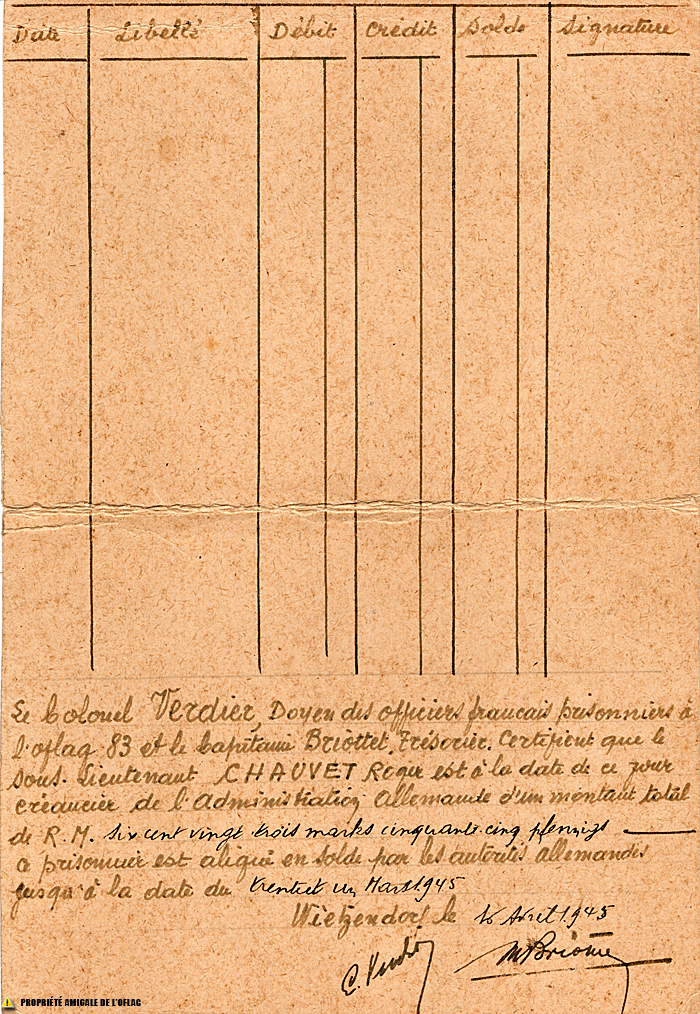 Date Libellé Débit Crédit Solde Signature
Le Colonel Verdier, Doyen des officiers francais prisonniers à
l'oflag 83 et le Capitaine Briottet, Trésorier. Certifient que le
sous. Lieutenant CHAUVET Roger est à la date de ce jour
créancier de l'Administration Allemande d'un montant total
de R.M. six cent vingt trois marks cinquante cinq pfennigs
Ce prisonnier est aligné en solde par les autorités allemandes
jusqu'à la date du trente et un Mars 1945
Wietzendorf le 16 Avril 1945
PROPRIÉTÉ AMICALE DE L'OFLAG